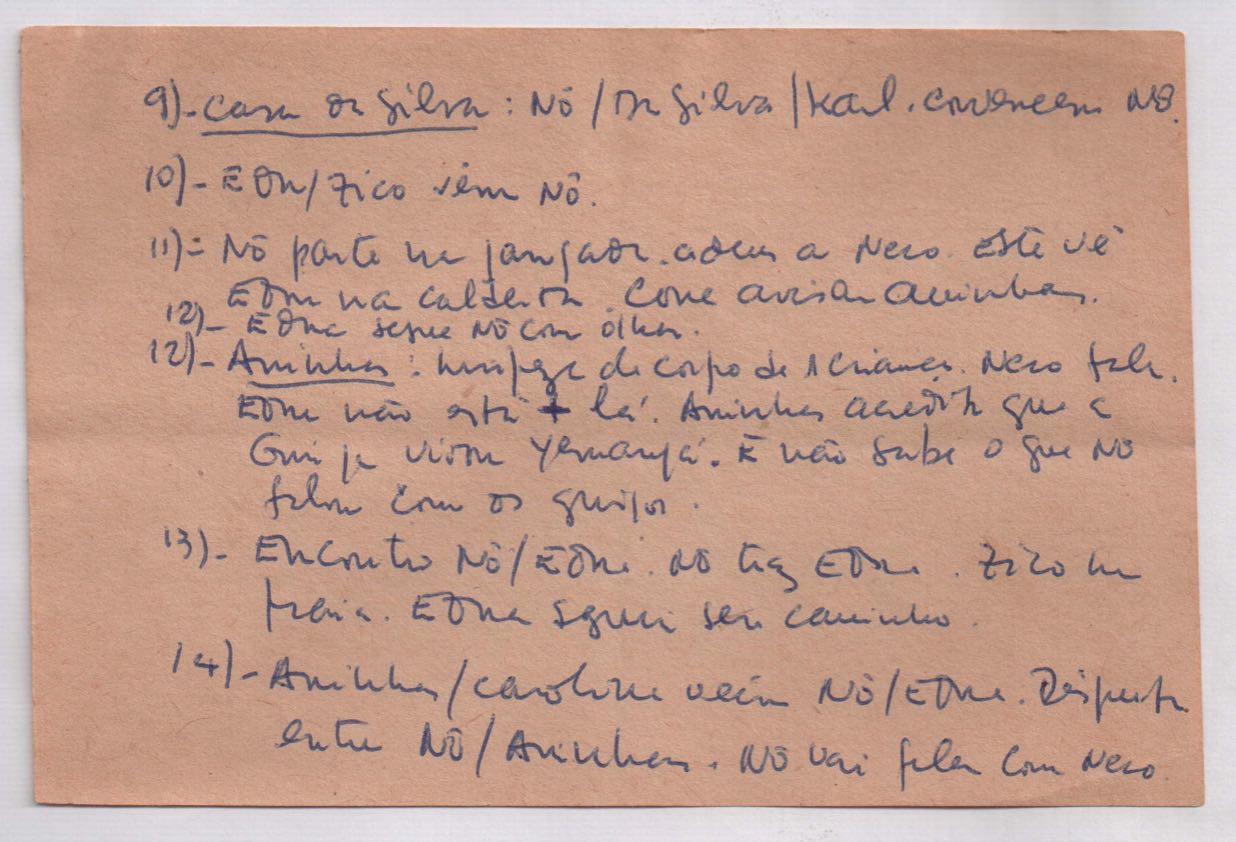 9)- Casa da Silva : Nô / Da Silva / Karl. convencem Nô.
10)- Edna/Zico vêm Nô.
11)- Nô parte na jangada. adeus a Neco. Este vê
Edna na caldeira. Corre avisar Aninhas.
12)- Edna segue Nô com olhar.
12)- Aninhas : limpeza de corpo de 1 criança. Neco fala.
Edna não está + lá. Aninhas acredita que a
virou Yemanjá. E não sabe o que Nô
falou com os
13)- Encontro Nô/Edna. Nô traz Edna. Zico na
praia. Edna seguiu seu caminho.
14)- Aninhas/Caroline veem Nô/Edna. Disputa
entre Nô/Aninhas. Nô vai falar com Neco